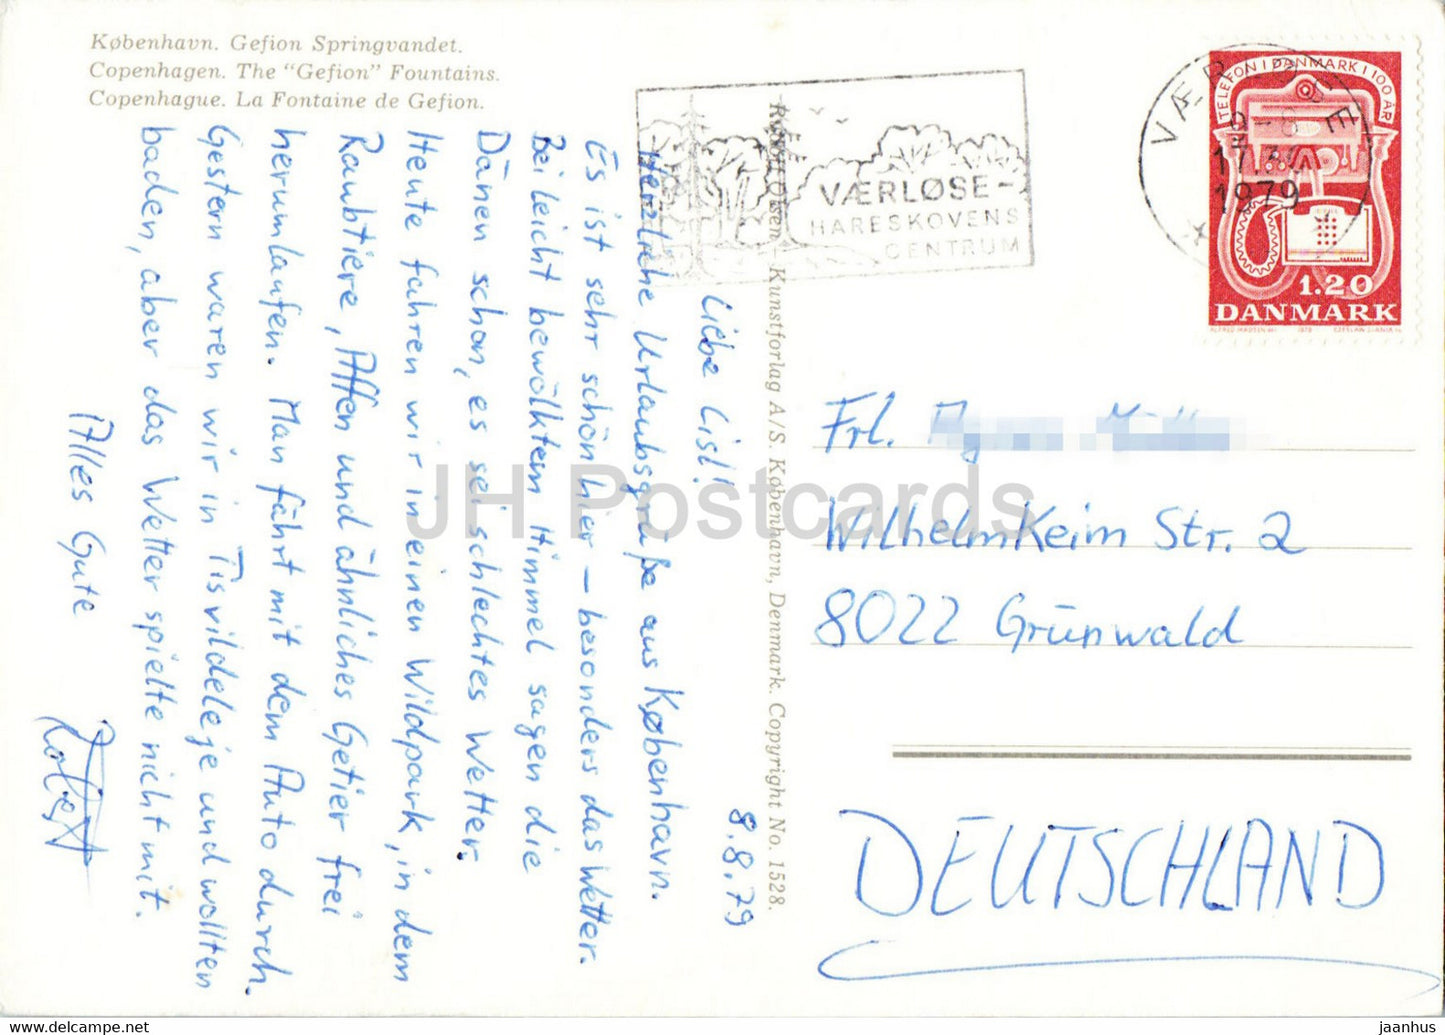 København. Gefion Springvandet.
Copenhagen. The "Gefion" Fountains.
Copenhague. La Fontaine de Gefion.
VÆRLØSE-
HARESKOVENS
CENTRUM
VÆRLØSE
17.30
1979
TELEFON I DANMARK I 100 ÅR
1.20
DANMARK
Rudolf Olsen - Kunstforlag A/S. København, Denmark. Copyright No. 1528.
8.8.79
Liebe Lisl!
Herzliche Urlaubsgrüße aus København.
Es ist sehr schön hier – besonders das Wetter.
Bei leicht bewölktem Himmel sagen die
Dänen schon, es sei schlechtes Wetter.
Heute fahren wir in einen Wildpark, in dem
Raubtiere, Affen und ähnliches Getier frei
herumlaufen. Man fährt mit dem Auto durch.
Gestern waren wir in Tisvildeleje und wollten
baden, aber das Wetter spielte nicht mit.
Alles Gute
Frl.
Wilhelm Keim Str. 2
8022 Grünwald
DEUTSCHLAND
JH Postcards
www.delcampe.net
jaanhus